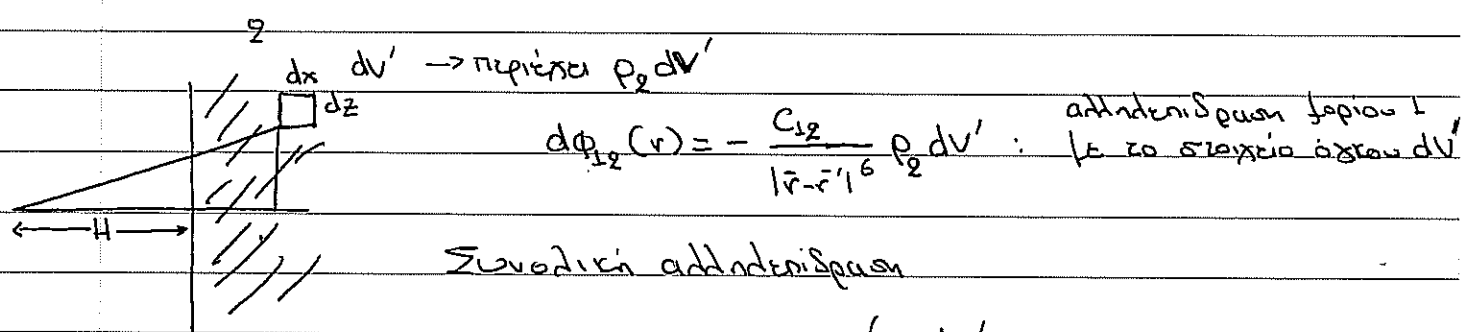 2
dx dV' → περιέχει ρ₂ dV'
dz
dφ₁₂(r) = - C₁₂ / |r̄-r̄'|⁶ ρ₂ dV' : αλληλεπίδραση μορίου 1
με το στοιχείο όγκου dV'
H
Συνολική αλληλεπίδραση